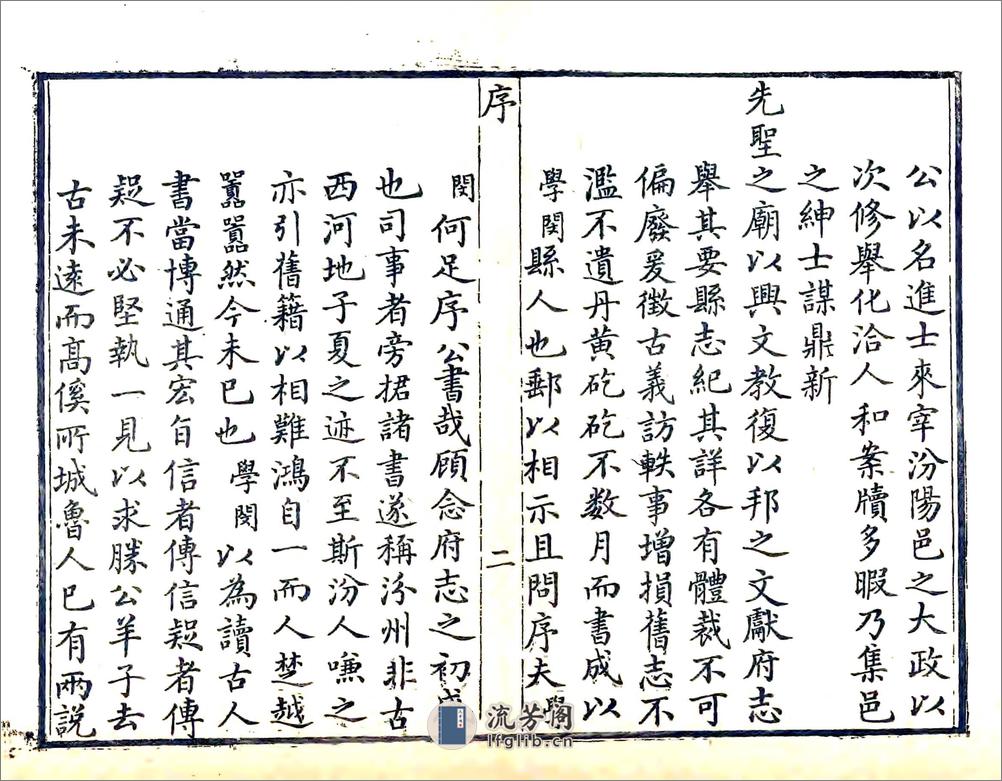 公以名進士來宰汾陽邑之大政以
次修舉化洽人和案牘多暇乃集邑
之紳士謀鼎新
先聖之廟以興文教復以邦之文獻府志
舉其要縣志紀其詳各有體裁不可
偏廢爰徵古義訪軼事增損舊志不
濫不遺丹黃矻矻不数月而書成以
學閔縣人也郵以相示且問序夫學
序 二
閔何足序公書哉顧念府志之初成
也司事者旁捃諸書遂稱汾州非古
西河地子夏之迹不至斯汾人嗛之
亦引舊籍以相難鴻自一而人楚越
囂囂然今未已也學閔以為讀古人
書當博通其宏旨信者傳信疑者傳
疑不必堅執一見以求勝公羊子去
古未遠而高傒所城魯人已有兩説
流芳閣
lfglib.cn